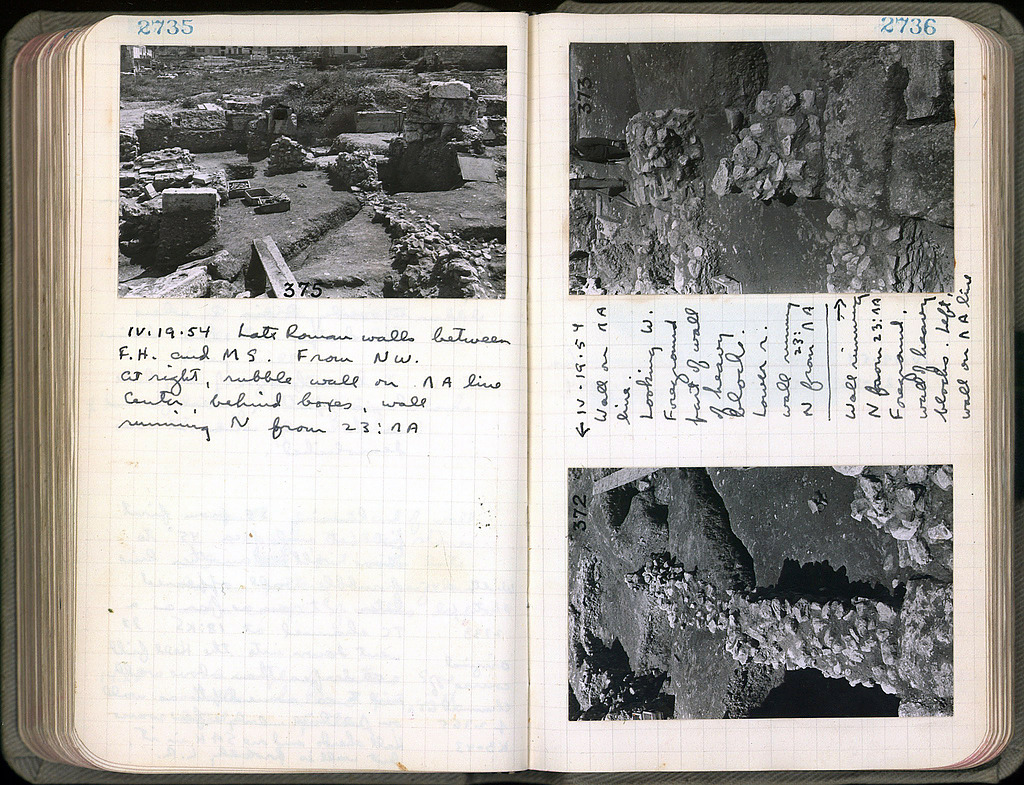 2735
375
IV.19.54 Late Roman walls between
F.H. and MS. From NW.
At right, rubble wall on ΛA line
Center, behind boxes, wall
running N from 23:ΛA
2736
373
← IV.19.54
Wall on ΛA
line.
Looking W.
Foreground
part of wall
of heavy
blocks.
Lower r.
wall running
N from 23:ΛA
→
Wall running
N from 23:ΛA
Foreground,
wall of heavy
blocks. Left,
wall on ΛA line
372